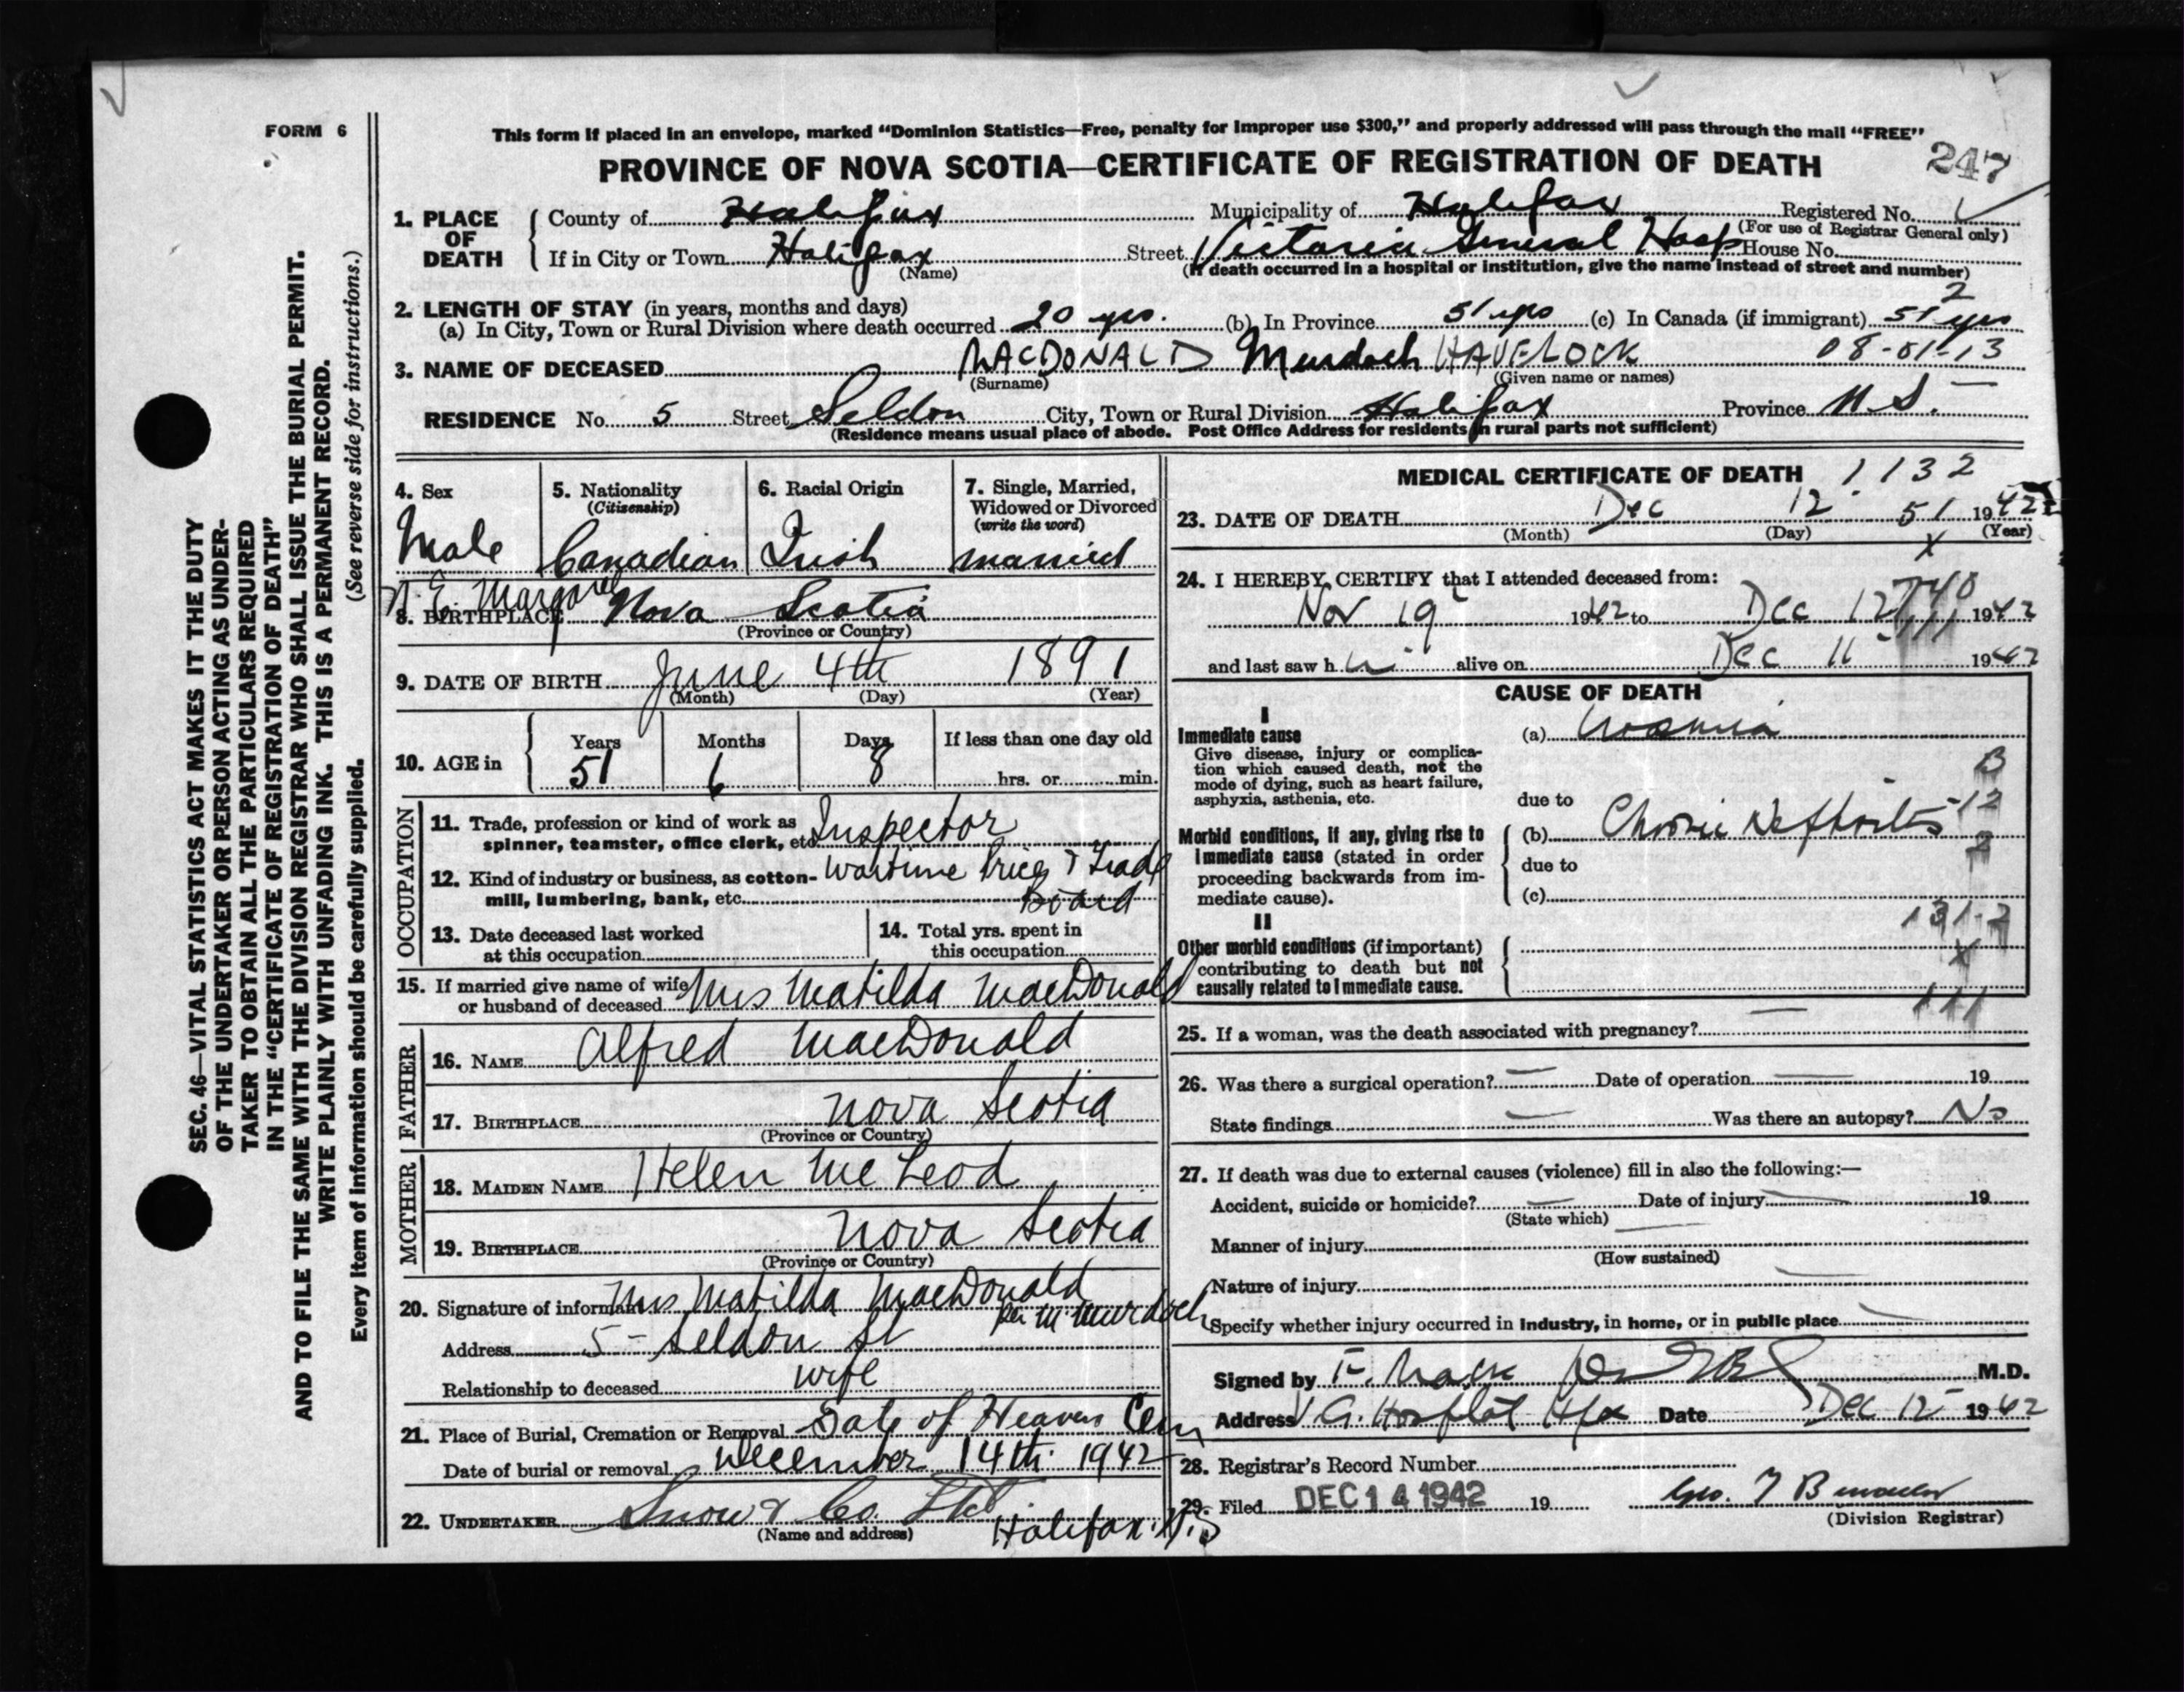 FORM 6
This form if placed in an envelope, marked “Dominion Statistics—Free, penalty for improper use $300,” and properly addressed will pass through the mail “FREE”
PROVINCE OF NOVA SCOTIA—CERTIFICATE OF REGISTRATION OF DEATH 247
1. PLACE OF DEATH
County of Halifax Municipality of Halifax Registered No.
(For use of Registrar General only)
If in City or Town Halifax Street Victoria General Hosp House No.
(Name) (If death occurred in a hospital or institution, give the name instead of street and number)
2. LENGTH OF STAY (in years, months and days) 2
(a) In City, Town or Rural Division where death occurred 20 yrs. (b) In Province 51 yrs (c) In Canada (if immigrant) 51 yrs
3. NAME OF DECEASED MACDONALD Murdoch HAVELOCK 08-01-13
(Surname) (Given name or names)
RESIDENCE No. 5 Street Seldon City, Town or Rural Division Halifax Province N.S.
(Residence means usual place of abode. Post Office Address for residents in rural parts not sufficient)
SEC. 46—VITAL STATISTICS ACT MAKES IT THE DUTY
OF THE UNDERTAKER OR PERSON ACTING AS UNDER-
TAKER TO OBTAIN ALL THE PARTICULARS REQUIRED
IN THE “CERTIFICATE OF REGISTRATION OF DEATH”
AND TO FILE THE SAME WITH THE DIVISION REGISTRAR WHO SHALL ISSUE THE BURIAL PERMIT.
WRITE PLAINLY WITH UNFADING INK. THIS IS A PERMANENT RECORD.
Every item of information should be carefully supplied. (See reverse side for instructions.)
4. Sex
Male
5. Nationality
(Citizenship)
Canadian
6. Racial Origin
Irish
7. Single, Married,
Widowed or Divorced
(write the word)
married
N.E. Margaree
8. BIRTHPLACE Nova Scotia
(Province or Country)
9. DATE OF BIRTH June 4th 1891
(Month) (Day) (Year)
10. AGE in
Years Months Days If less than one day old
51 6 8 hrs. or min.
OCCUPATION
11. Trade, profession or kind of work as
spinner, teamster, office clerk, etc. Inspector
12. Kind of industry or business, as cotton-
mill, lumbering, bank, etc. Wartime Prices & Trade
Board
13. Date deceased last worked
at this occupation
14. Total yrs. spent in
this occupation
15. If married give name of wife
or husband of deceased Mrs Matilda MacDonald
FATHER
16. NAME Alfred MacDonald
17. BIRTHPLACE Nova Scotia
(Province or Country)
MOTHER
18. MAIDEN NAME Helen McLeod
19. BIRTHPLACE Nova Scotia
(Province or Country)
20. Signature of informant Mrs Matilda MacDonald
Per M Murdoch
Address 5 - Seldon St
Relationship to deceased wife
21. Place of Burial, Cremation or Removal Gate of Heaven Cem
Date of burial or removal December 14th 1942
22. UNDERTAKER Snow & Co. Ltd Halifax N.S
(Name and address)
MEDICAL CERTIFICATE OF DEATH 1132
23. DATE OF DEATH Dec 12 51 1942
(Month) (Day) (Year)
X
24. I HEREBY CERTIFY that I attended deceased from:
740
Nov 19 1942 to Dec 12 1942
111
and last saw h im alive on Dec 11 1942
CAUSE OF DEATH
I
Immediate cause
Give disease, injury or complica-
tion which caused death, not the
mode of dying, such as heart failure,
asphyxia, asthenia, etc.
(a) Uraemia
B
due to
12
Morbid conditions, if any, giving rise to
immediate cause (stated in order
proceeding backwards from im-
mediate cause).
(b) Chronic Nephritis
2
due to
(c)
131-2
II
Other morbid conditions (if important)
contributing to death but not
causally related to immediate cause.
X
111
25. If a woman, was the death associated with pregnancy? —
26. Was there a surgical operation? — Date of operation — 19
State findings — Was there an autopsy? No
27. If death was due to external causes (violence) fill in also the following:—
Accident, suicide or homicide? — Date of injury — 19
(State which)
Manner of injury
(How sustained)
Nature of injury
Specify whether injury occurred in industry, in home, or in public place
Signed by F. Mack M.D.
Address V.G. Hospital Hfx Date Dec 12 1942
28. Registrar's Record Number
29. Filed DEC 14 1942 19
(Division Registrar)